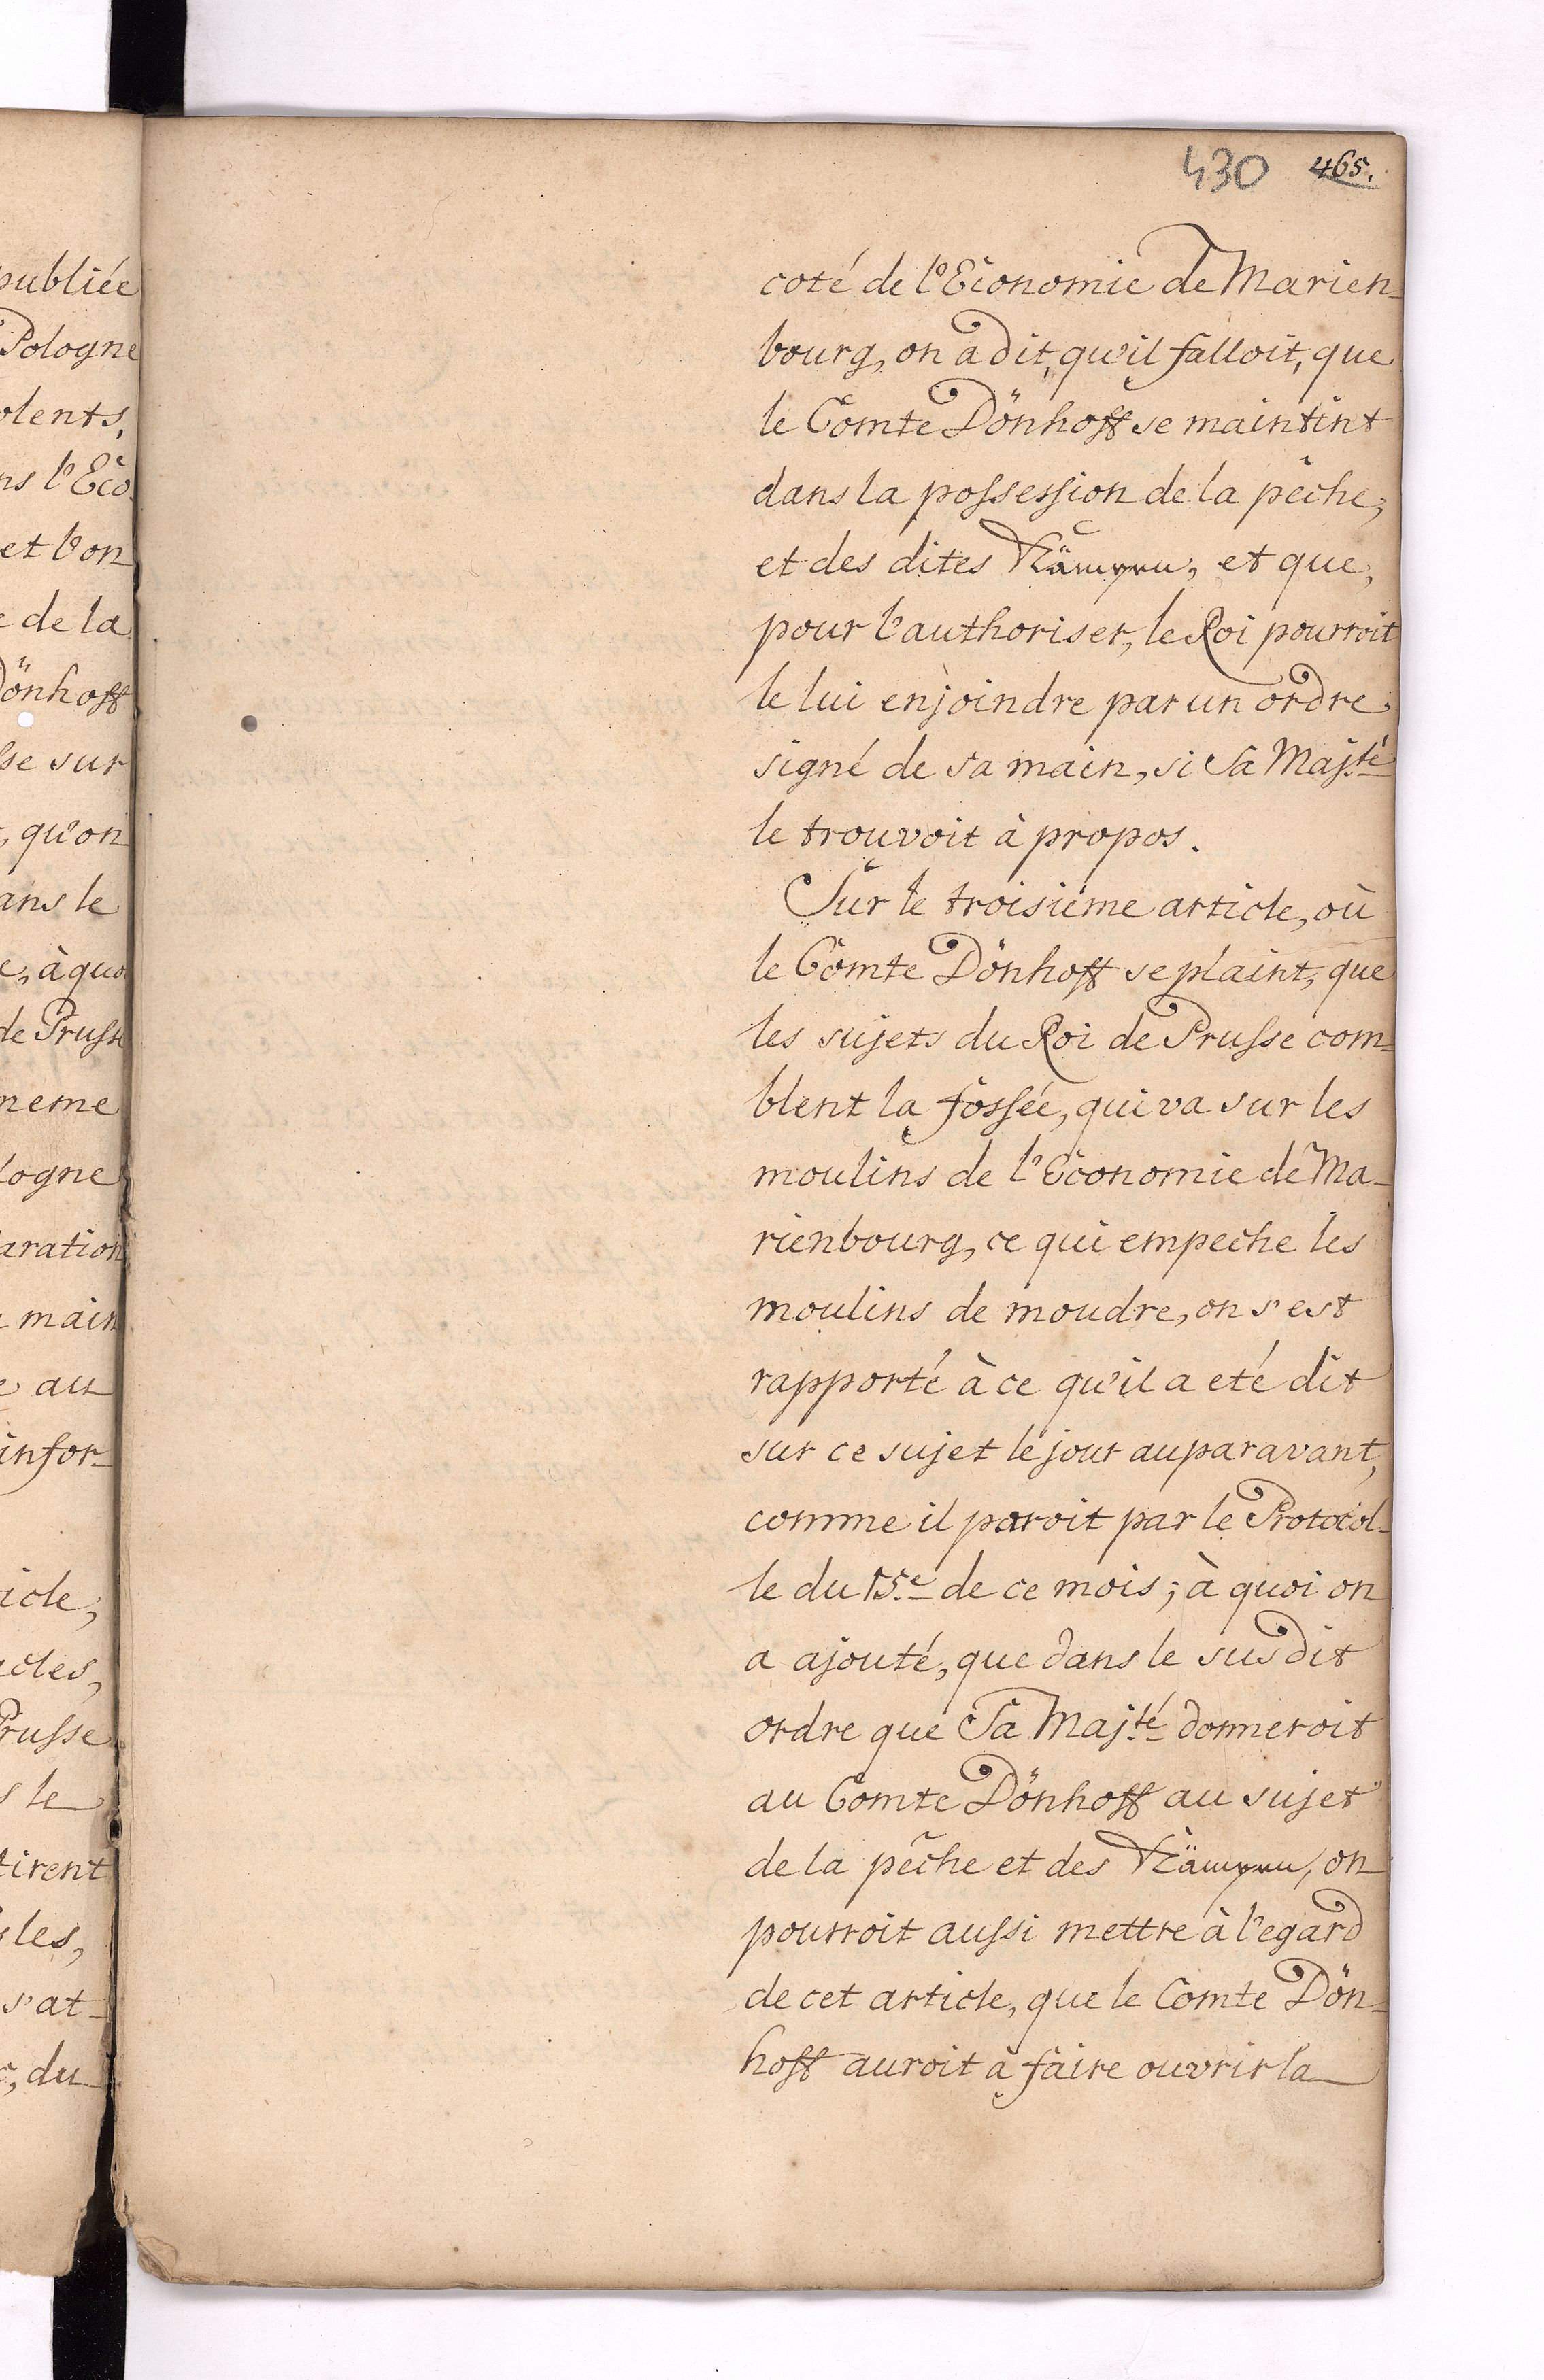 publiée
Pologne
olents,
ns l'Eco
et l'on
e de la
Dönhoff
sse sur
, qu'on
ans le
e, à quo
de Prusse
meme
logne
aration
main
e au
infor-
icle,
icles,
Prusse
s le
tirent
les,
s'at-
, du
430 465.
coté de l'Economie de Marien-
bourg, on a dit, qu'il falloit, que
le Comte Dönhoff se maintint
dans la possession de la pêche,
et des dites Kämpen, et que,
pour l'authoriser, le Roi pourroit
le lui enjoindre par un ordre
signé de sa main, si Sa Maj.té
le trouvoit à propos.
Sur le troisième article, où
le Comte Dönhoff se plaint, que
les sujets du Roi de Prusse com-
blent la fossée, qui va sur les
moulins de l'Economie de Ma-
rienbourg, ce qui empeche les
moulins de moudre, on s'est
rapporté à ce qu'il a eté dit
sur ce sujet le jour auparavant,
comme il paroit par le Protocol-
le du 15.e de ce mois; à quoi on
a ajouté, que dans le susdit
ordre que Sa Maj.té donneroit
au Comte Dönhoff au sujet
de la pêche et des Kämpen, on
pourroit aussi mettre à l'egard
de cet article, que le Comte Dön-
hoff auroit à faire ouvrir la